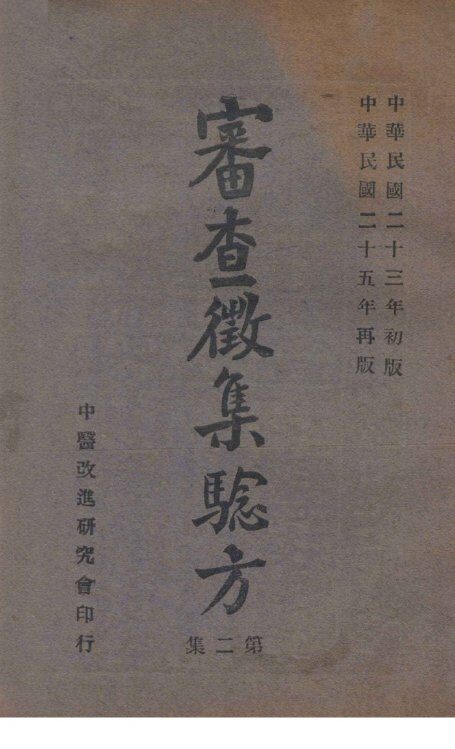 中華民國二十三年初版
中華民國二十五年再版
審查徵集騐方
第二集
中醫改進研究會印行